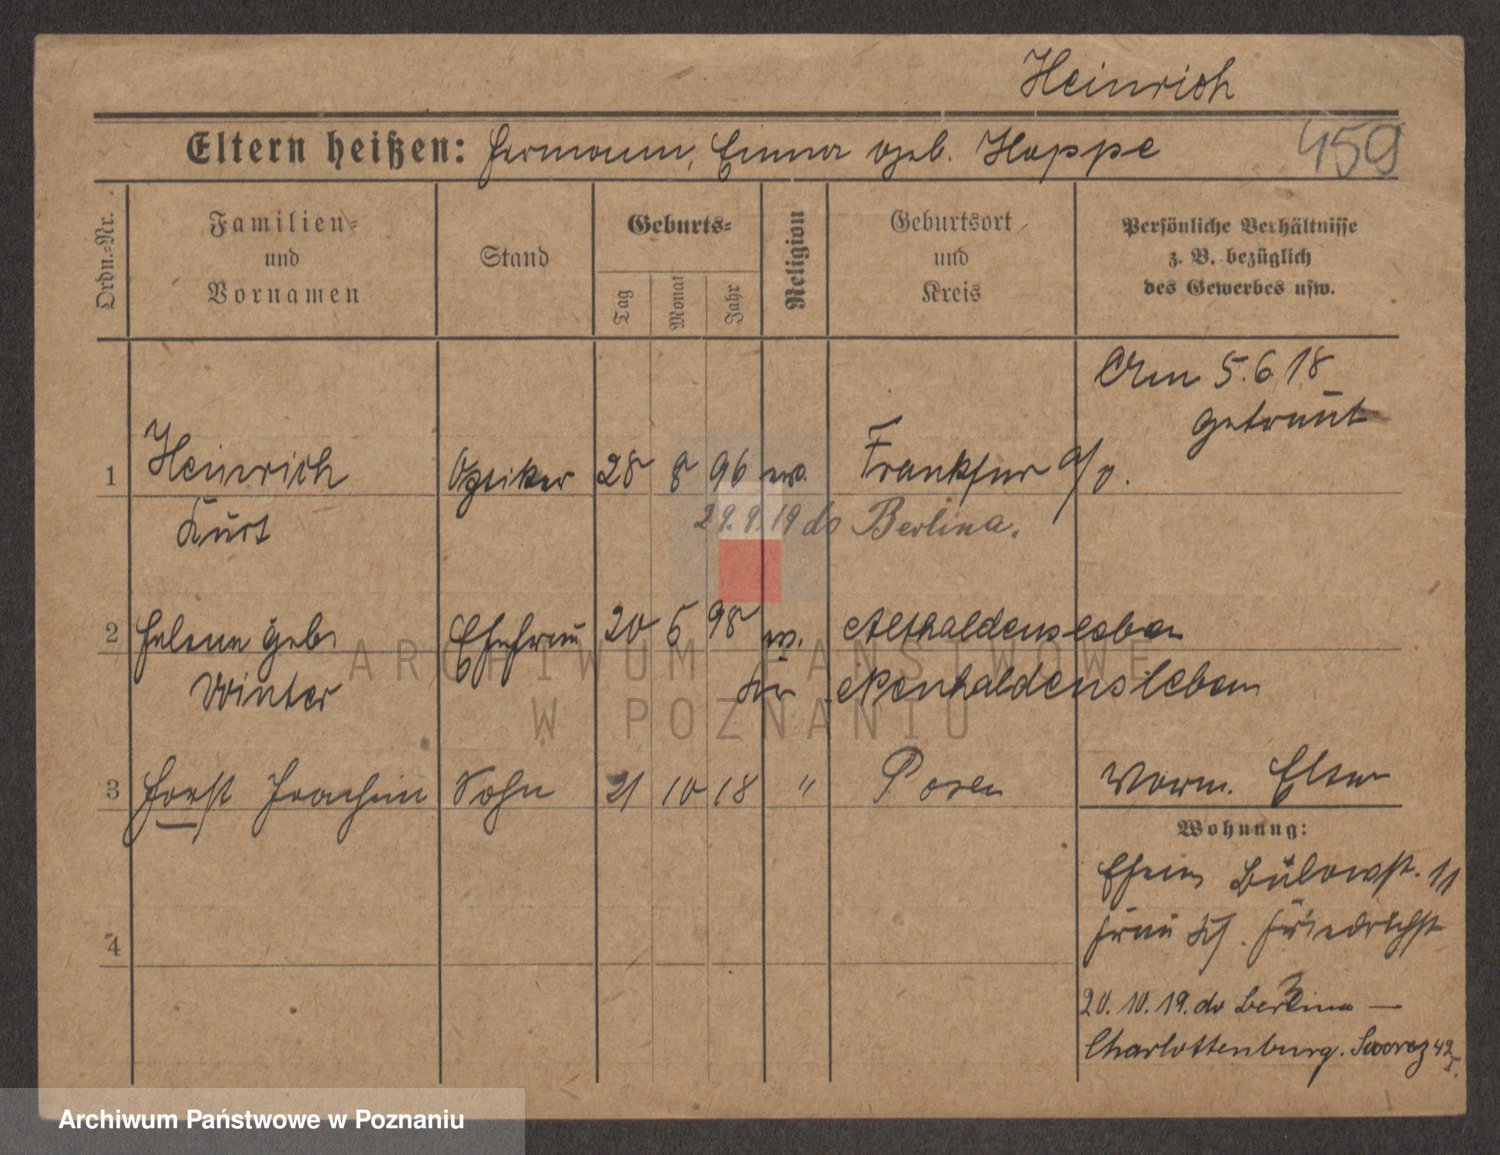 Heinrich
Eltern heißen: Hermann, Emma geb. Hoppe 459
Ordn.-Nr.
Familien-
und
Vornamen
Stand
Geburts-
Tag
Monat
Jahr
Religion
Geburtsort
und
Kreis
Persönliche Verhältnisse
z. B. bezüglich
des Gewerbes usw.
Am 5.6.18
getraut
1 Heinrich Optiker 28 8 96 ev. Frankfur a/o.
Kurt 29.9.19 do Berlina.
2 Helene geb. Ehefrau 20 5 98 ev. Althaldensleben
Winter Kr Neuhaldensleben
3 Horst Joachim Sohn 21 10 18 " Posen Worm. Eltern
Wohnung:
Ehem Bülowst. 11
4 Frau Friedrichst
20.10.19. do Berlina —
Charlottenburg. Suarez 42 I.
ARCHIWUM PAŃSTWOWE
W POZNANIU
Archiwum Państwowe w Poznaniu